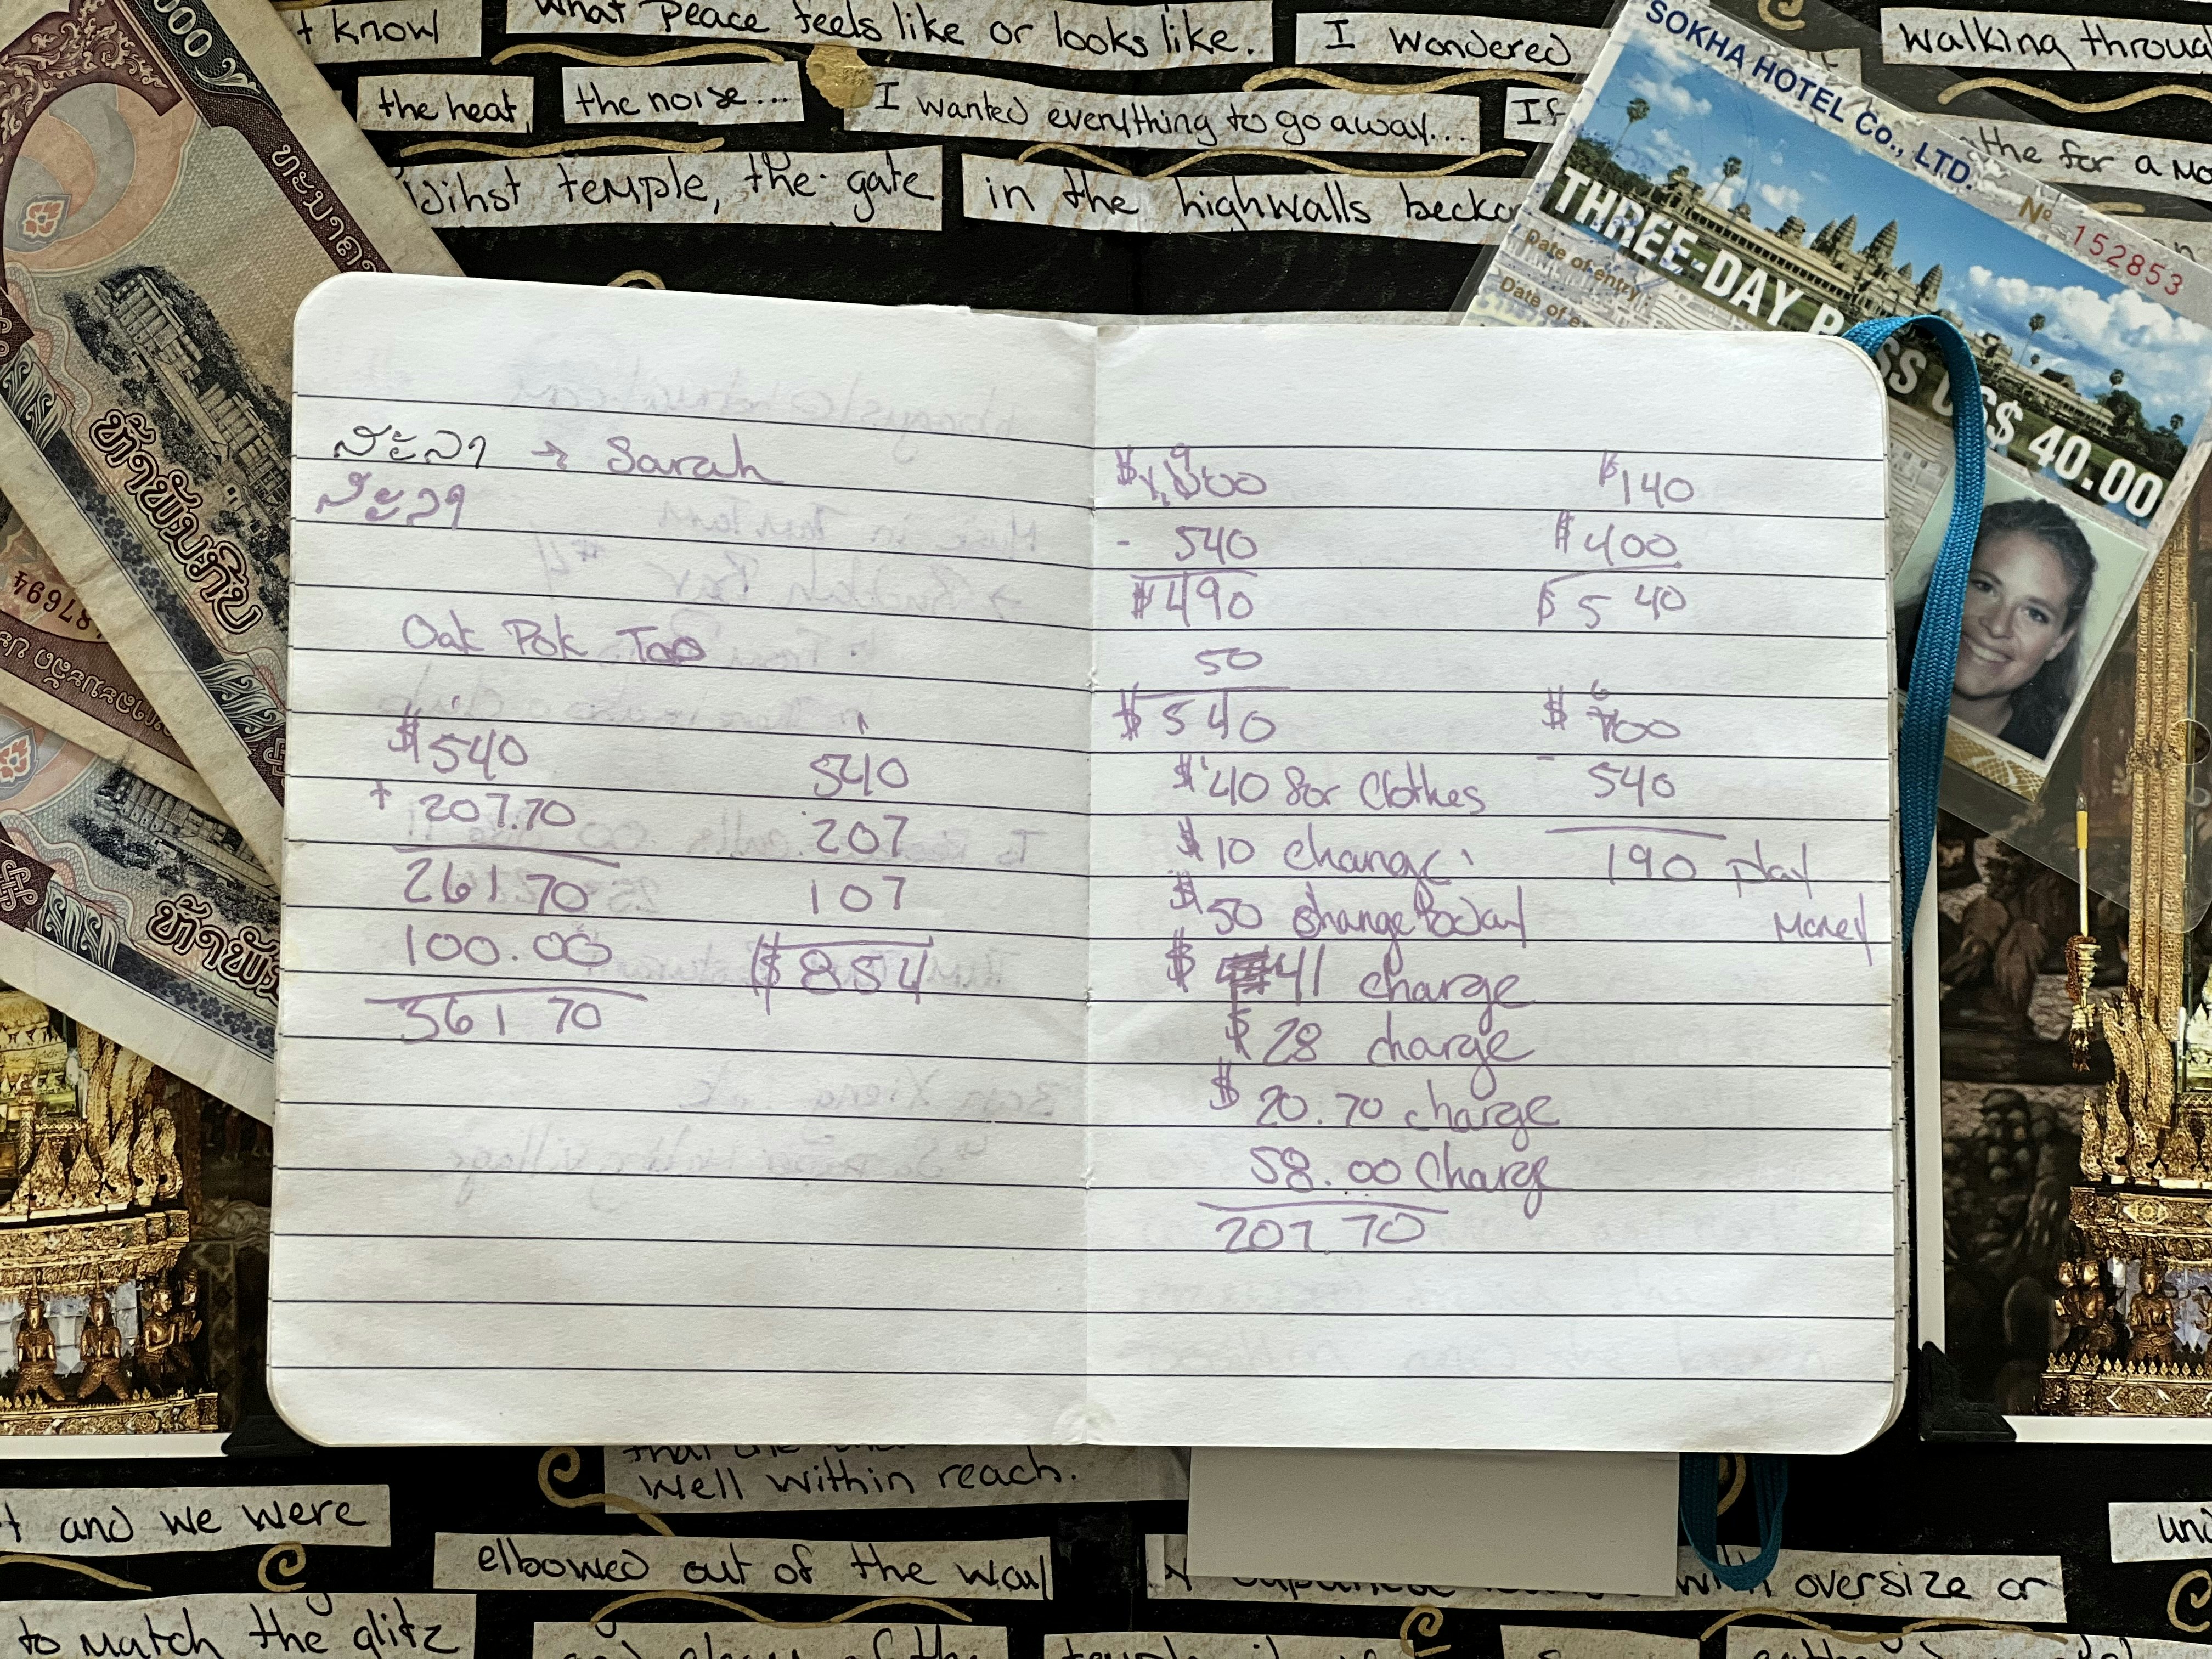 t know
what peace feels like or looks like.
I wondered
walking throug
the heat,
the noise...
I wanted everything to go away...
If
the for a mo
the gate
temple,
in the highwalls
SOKHA HOTEL Co., LTD.
Nº 152853
THREE-DAY PASS US$ 40.00
Date of entry:
Date of e
000
ຫ້າພັນກີບ
87694
ຫ້າພັນ
ສະລາ → Sarah
ສະລາ
Oak Pok Too
$540
+ 207.70
261 70
100.00
361 70
540
207
107
$854
$1,000
- 540
$490
50
$540
$40 for clothes
$10 change
$50 change today
$ 41 charge
$ 28 charge
$ 20.70 charge
58.00 Charge
207.70
$140
$400
$540
$700
- 540
190 play
money
well within reach.
t and we were
elbowed out of the way
with oversize or
to match the glitz